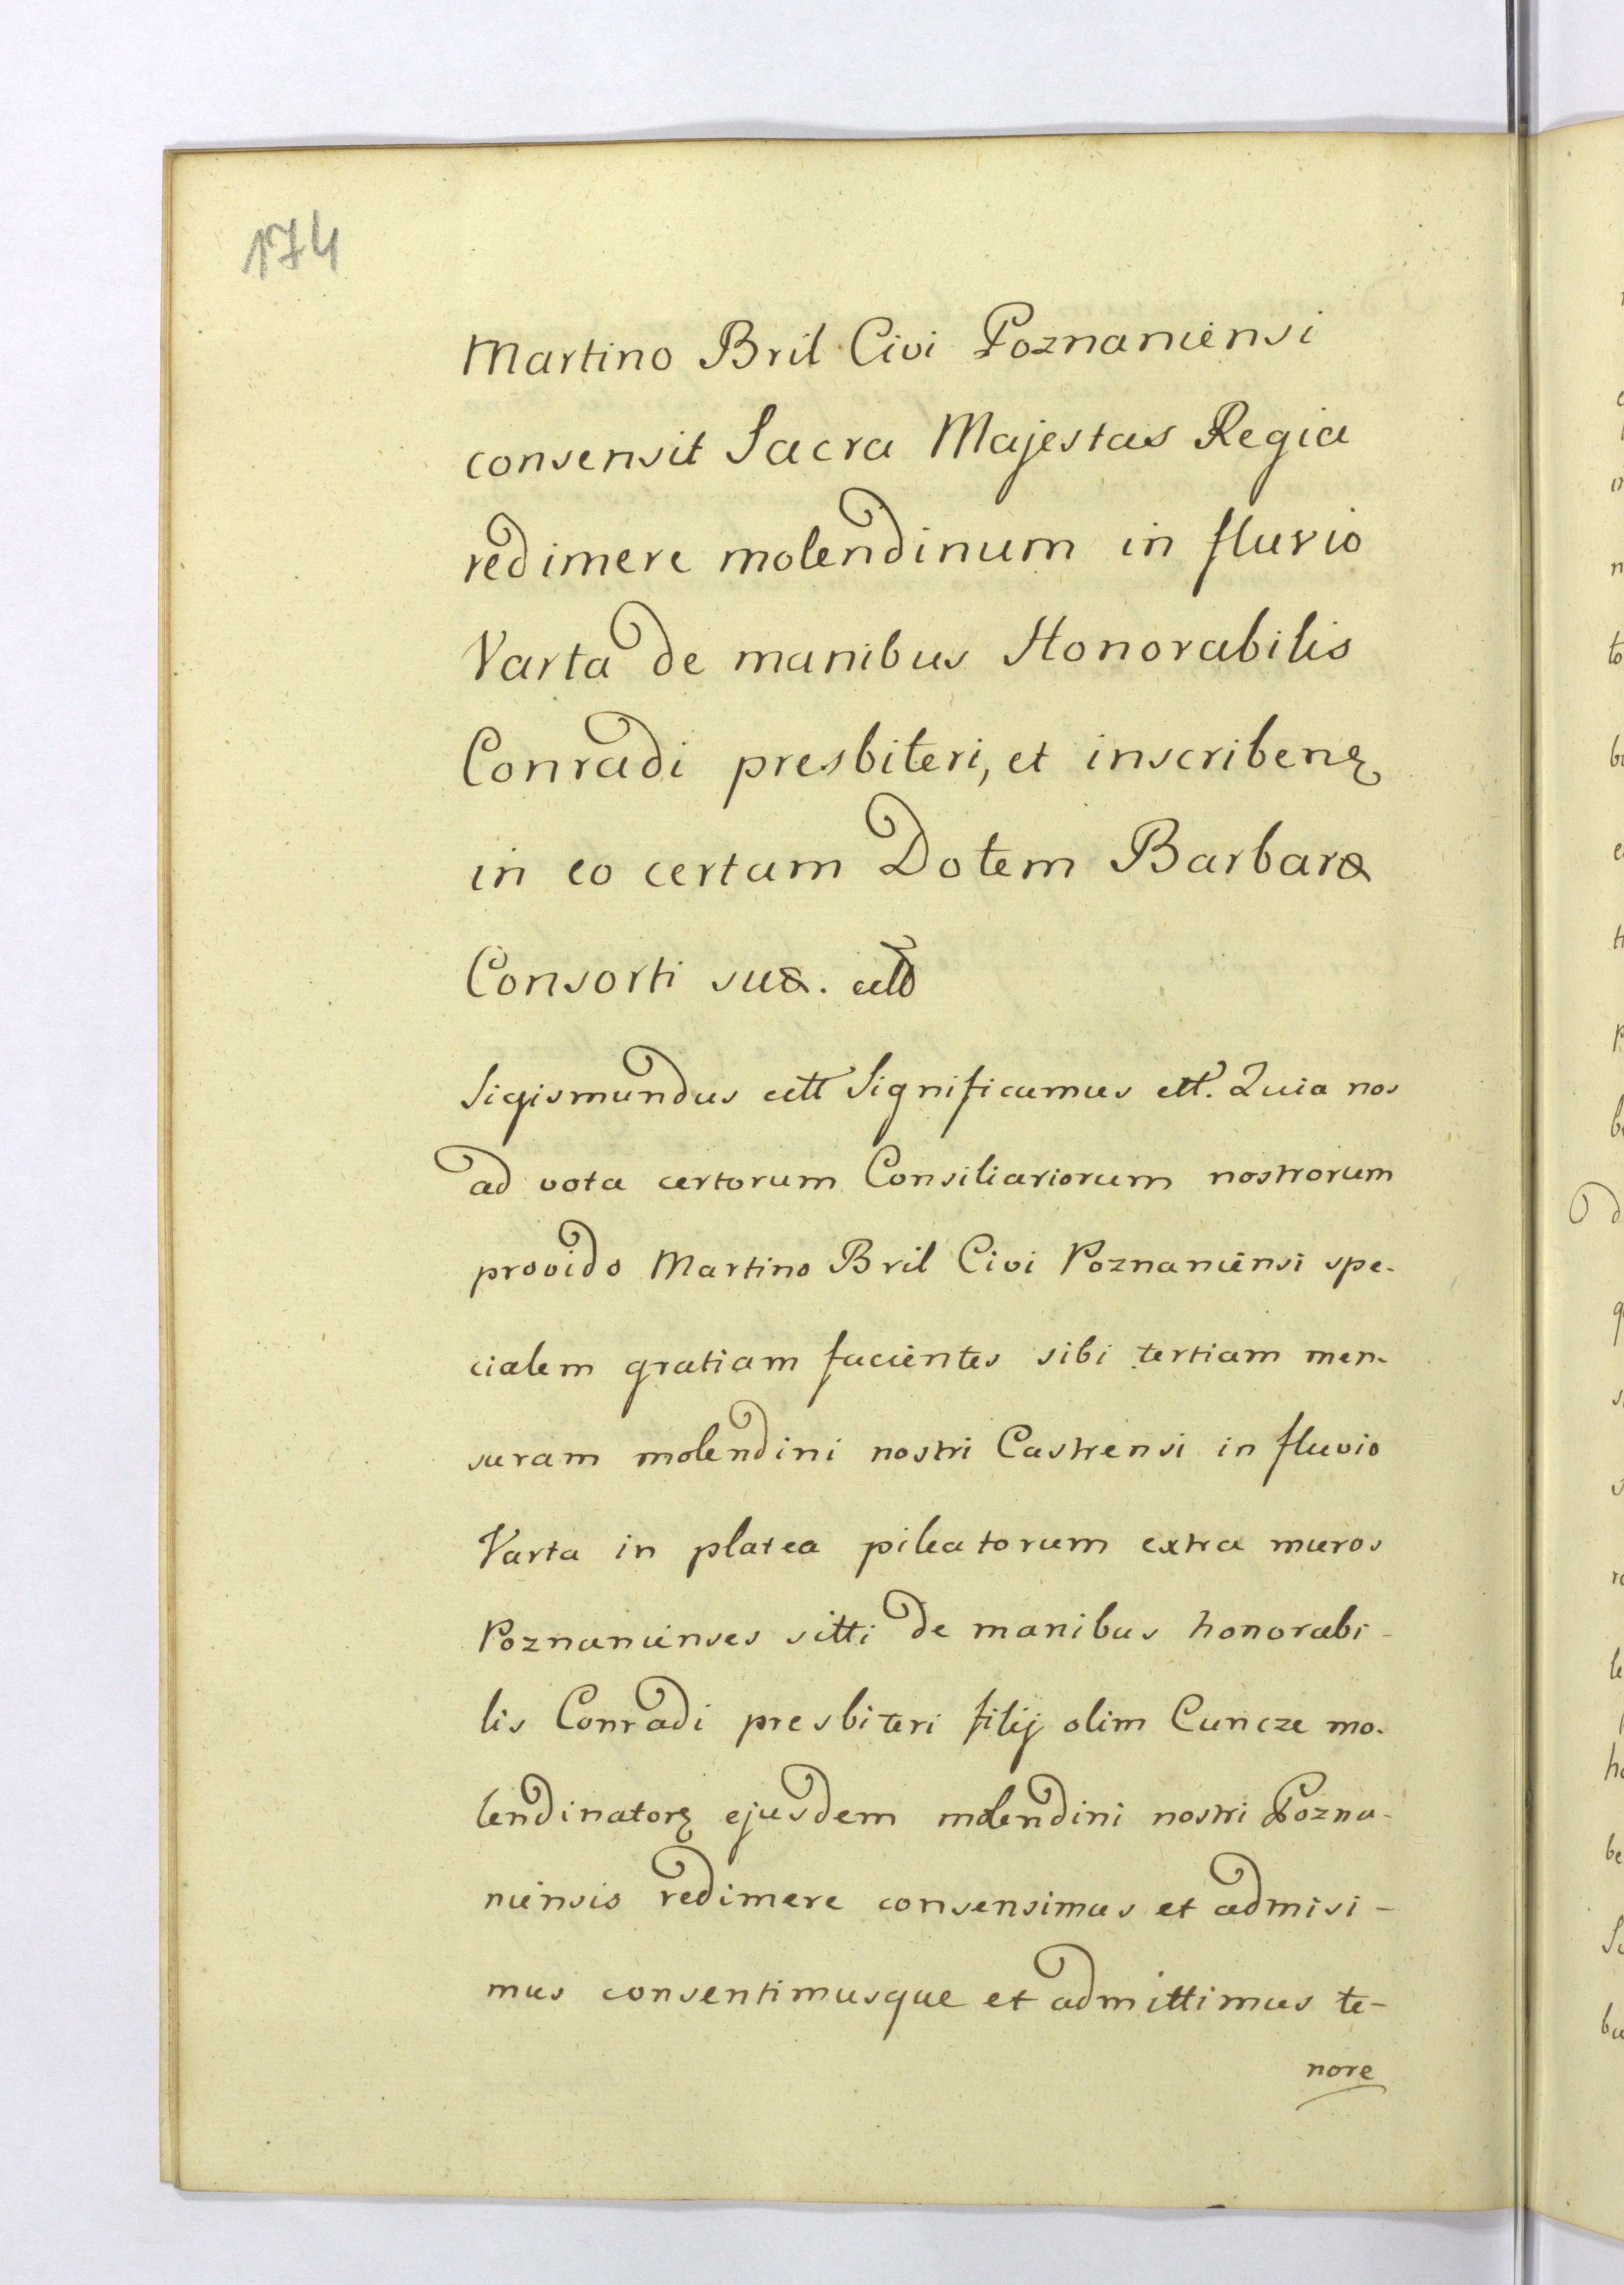 174
Martino Bril Civi Poznaniensi
consensit Sacra Majestas Regia
redimere molendinum in fluvio
Varta de manibus Honorabilis
Conradi presbiteri, et inscribenę
in eo certam Dotem Barbaræ
Consorti suæ. ett
Sigismundus ett Significamus ett. Quia nos
ad vota certorum Consiliariorum nostrorum
provido Martino Bril Civi Poznaniensi spe-
cialem gratiam facientes sibi tertiam men-
suram molendini nostri Castrensi in fluvio
Varta in platea pileatorum extra muros
Poznanienses sitti de manibus honorabi-
lis Conradi presbiteri filij olim Cuncze mo-
lendinatorę ejusdem molendini nostri Pozna-
niensis redimere consensimus et admisi-
mus consentimusque et admittimus te-
nore